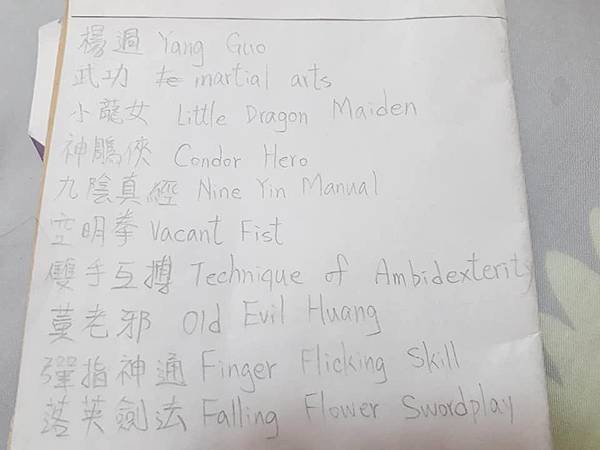 楊過 Yang Guo
武功 martial arts
小龍女 Little Dragon Maiden
神鵰俠 Condor Hero
九陰真經 Nine Yin Manual
空明拳 Vacant Fist
雙手互搏 Technique of Ambidexterity
黃老邪 Old Evil Huang
彈指神通 Finger Flicking Skill
落英劍法 Falling Flower Swordplay